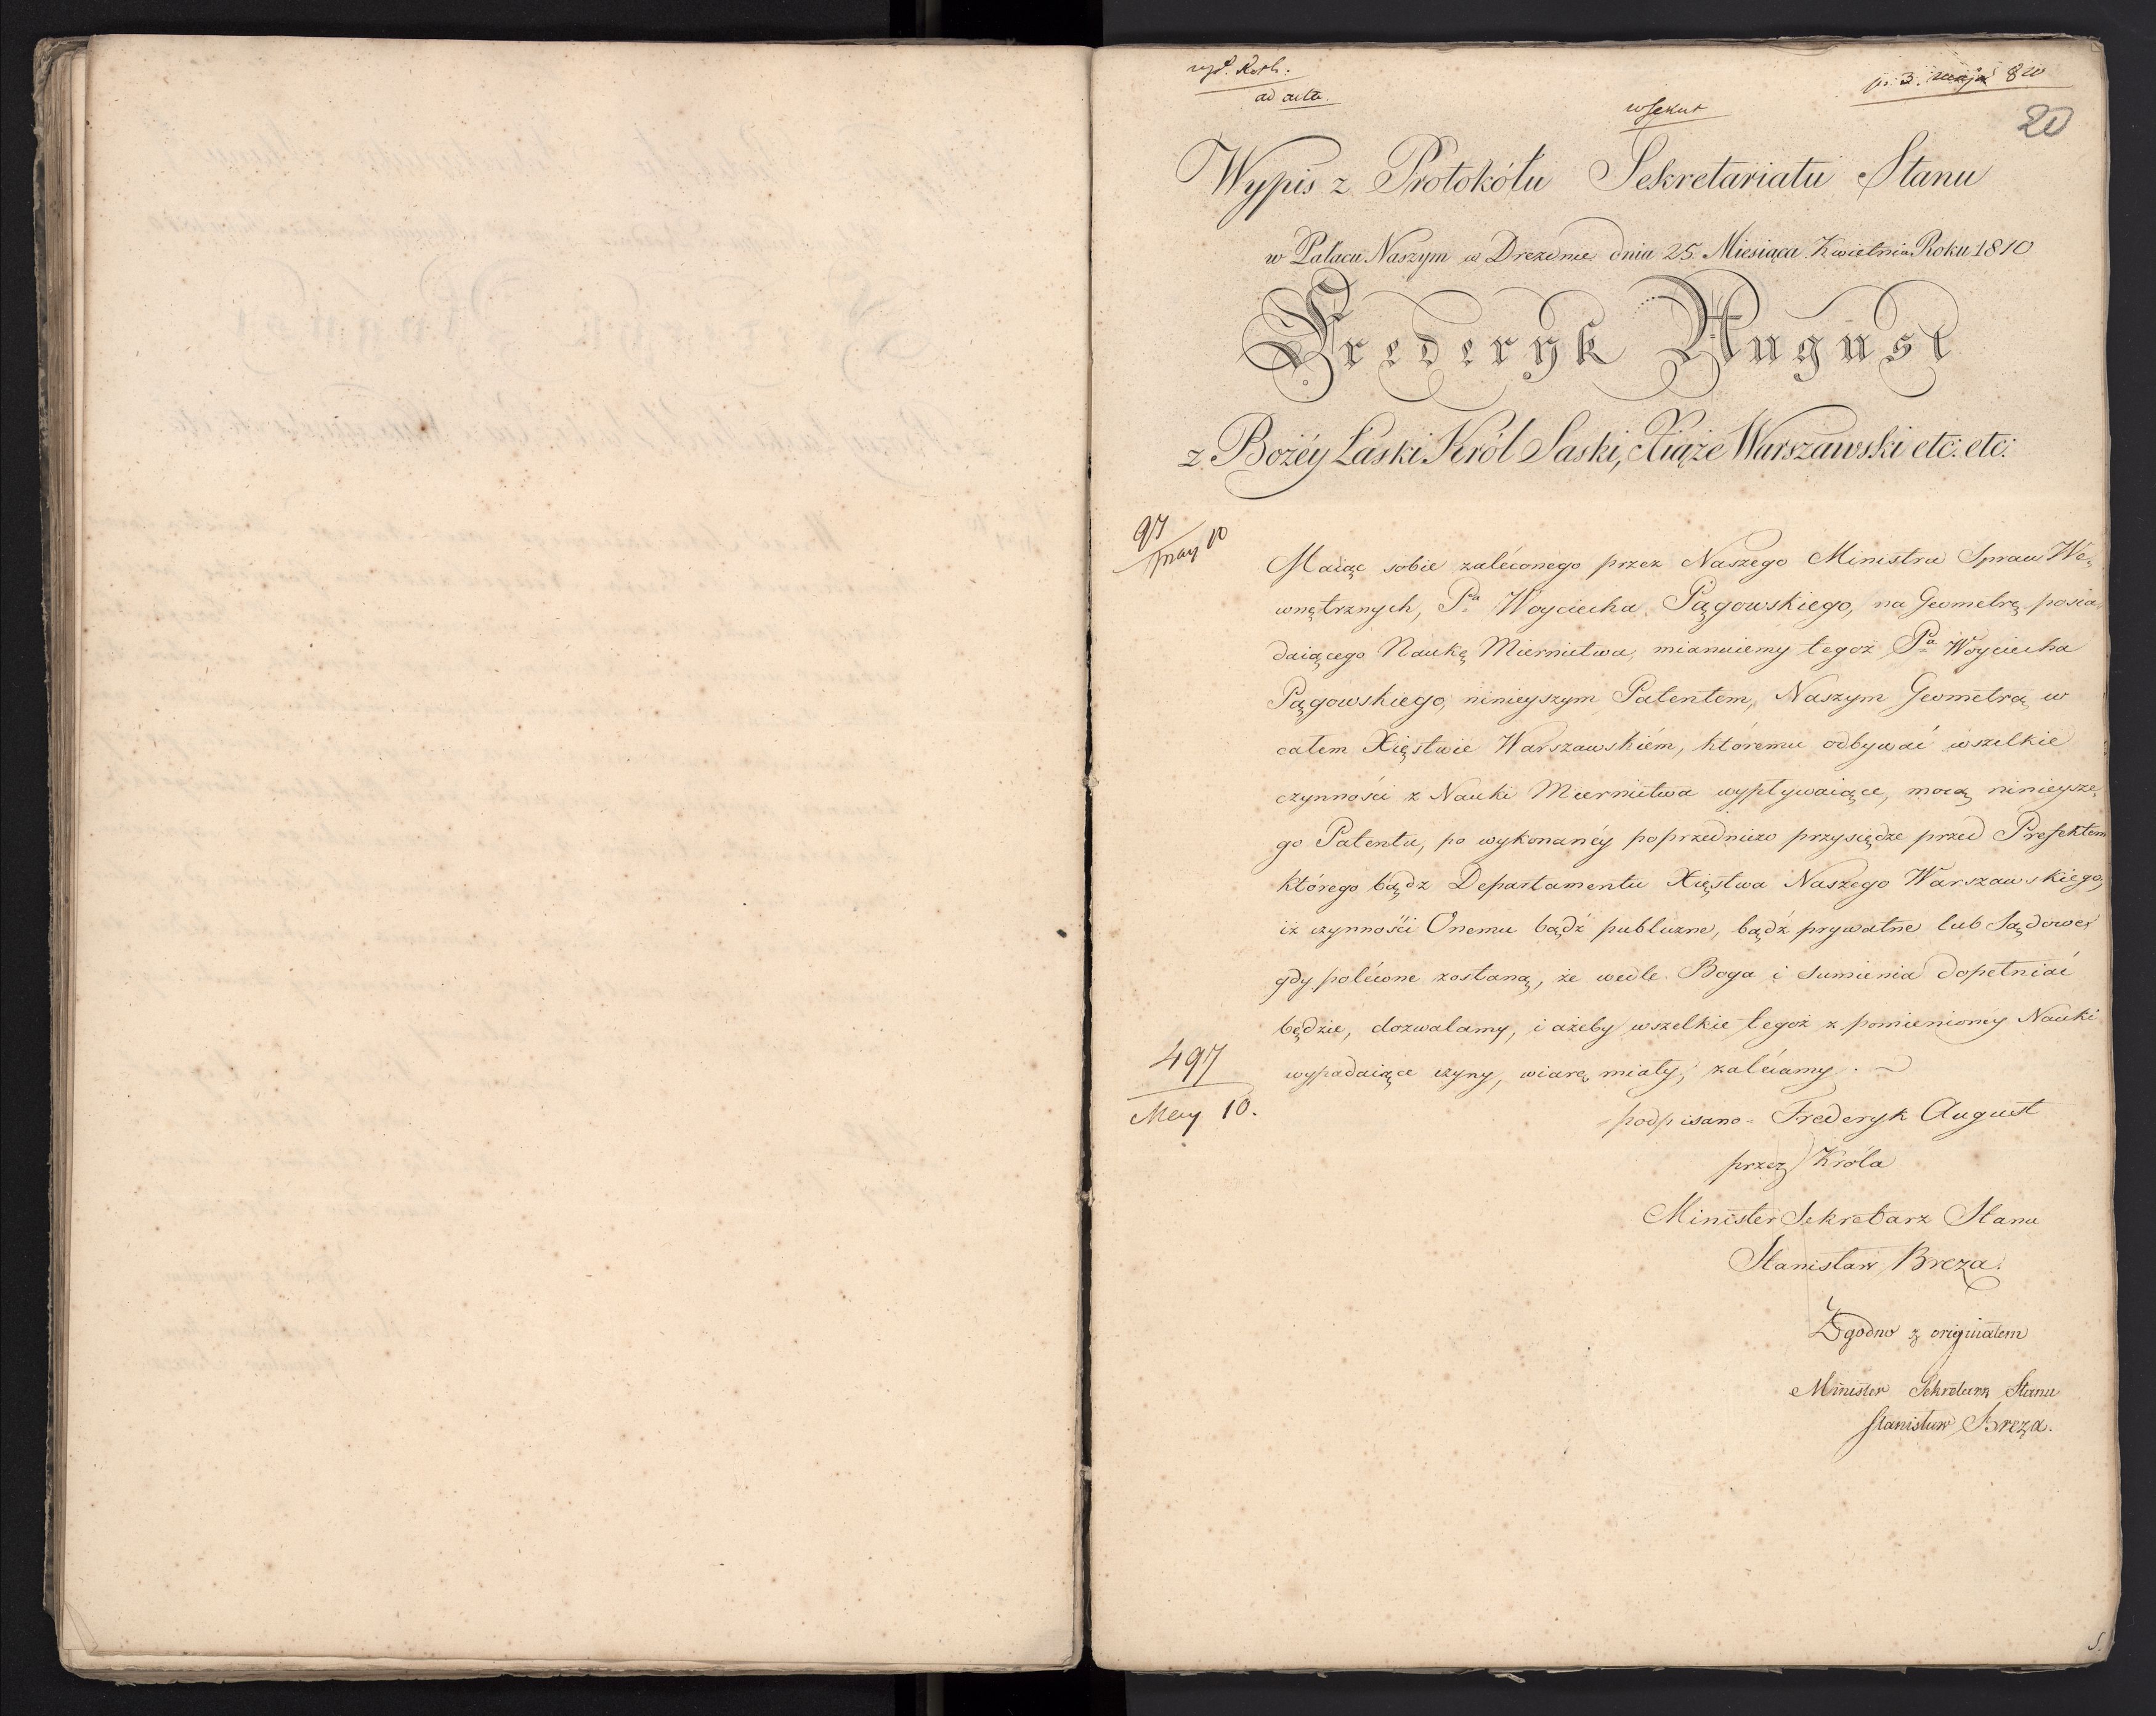 ad acta.
pr. 3. maja 810
20
Wypis z Protokółu Sekretariatu Stanu
w Pałacu Naszym w Dreznie dnia 25. Miesiąca Kwietnia Roku 1810
Frederyk August
z Bożéy Łaski Król Saski, Xiąże Warszawski etc: etc:
97
may 10
Maiąc sobie zaléconego przez Naszego Ministra Spraw We-
wnętrznych, Pa Woyciecha Pągowskiego, na Geometrę posia-
daiącego Naukę Miernictwa, mianuiemy tegoż Pa Woyciecha
Pągowskiego, ninieyszym Patentem, Naszym Geometrą w
całem Xięstwie Warszawskiém, któremu odbywać wszelkie
czynności z Nauki Miernictwa wypływaiące, mocą ninieysze-
go Patentu, po wykonanéy poprzedniczo przysiędze przed Prefektem
którego bądz Departamentu Xięstwa Naszego Warszawskiego,
iż czynności Onemu bądź publiczne, bądź prywatne lub Sądowe
gdy polécone zostaną, że wedle Boga i Sumienia dopełniać
będzie, dozwalamy, i ażeby wszelkie tegoż z pomienioney Nauki
wypadaiące czyny, wiarę miały, zalécamy.
497
May 10.
podpisano - Frederyk August
przez Króla
Minister Sekretarz Stanu
Stanisław Breza.
Zgodno z originałem
Minister Sekretarz Stanu
Stanisław Breza.